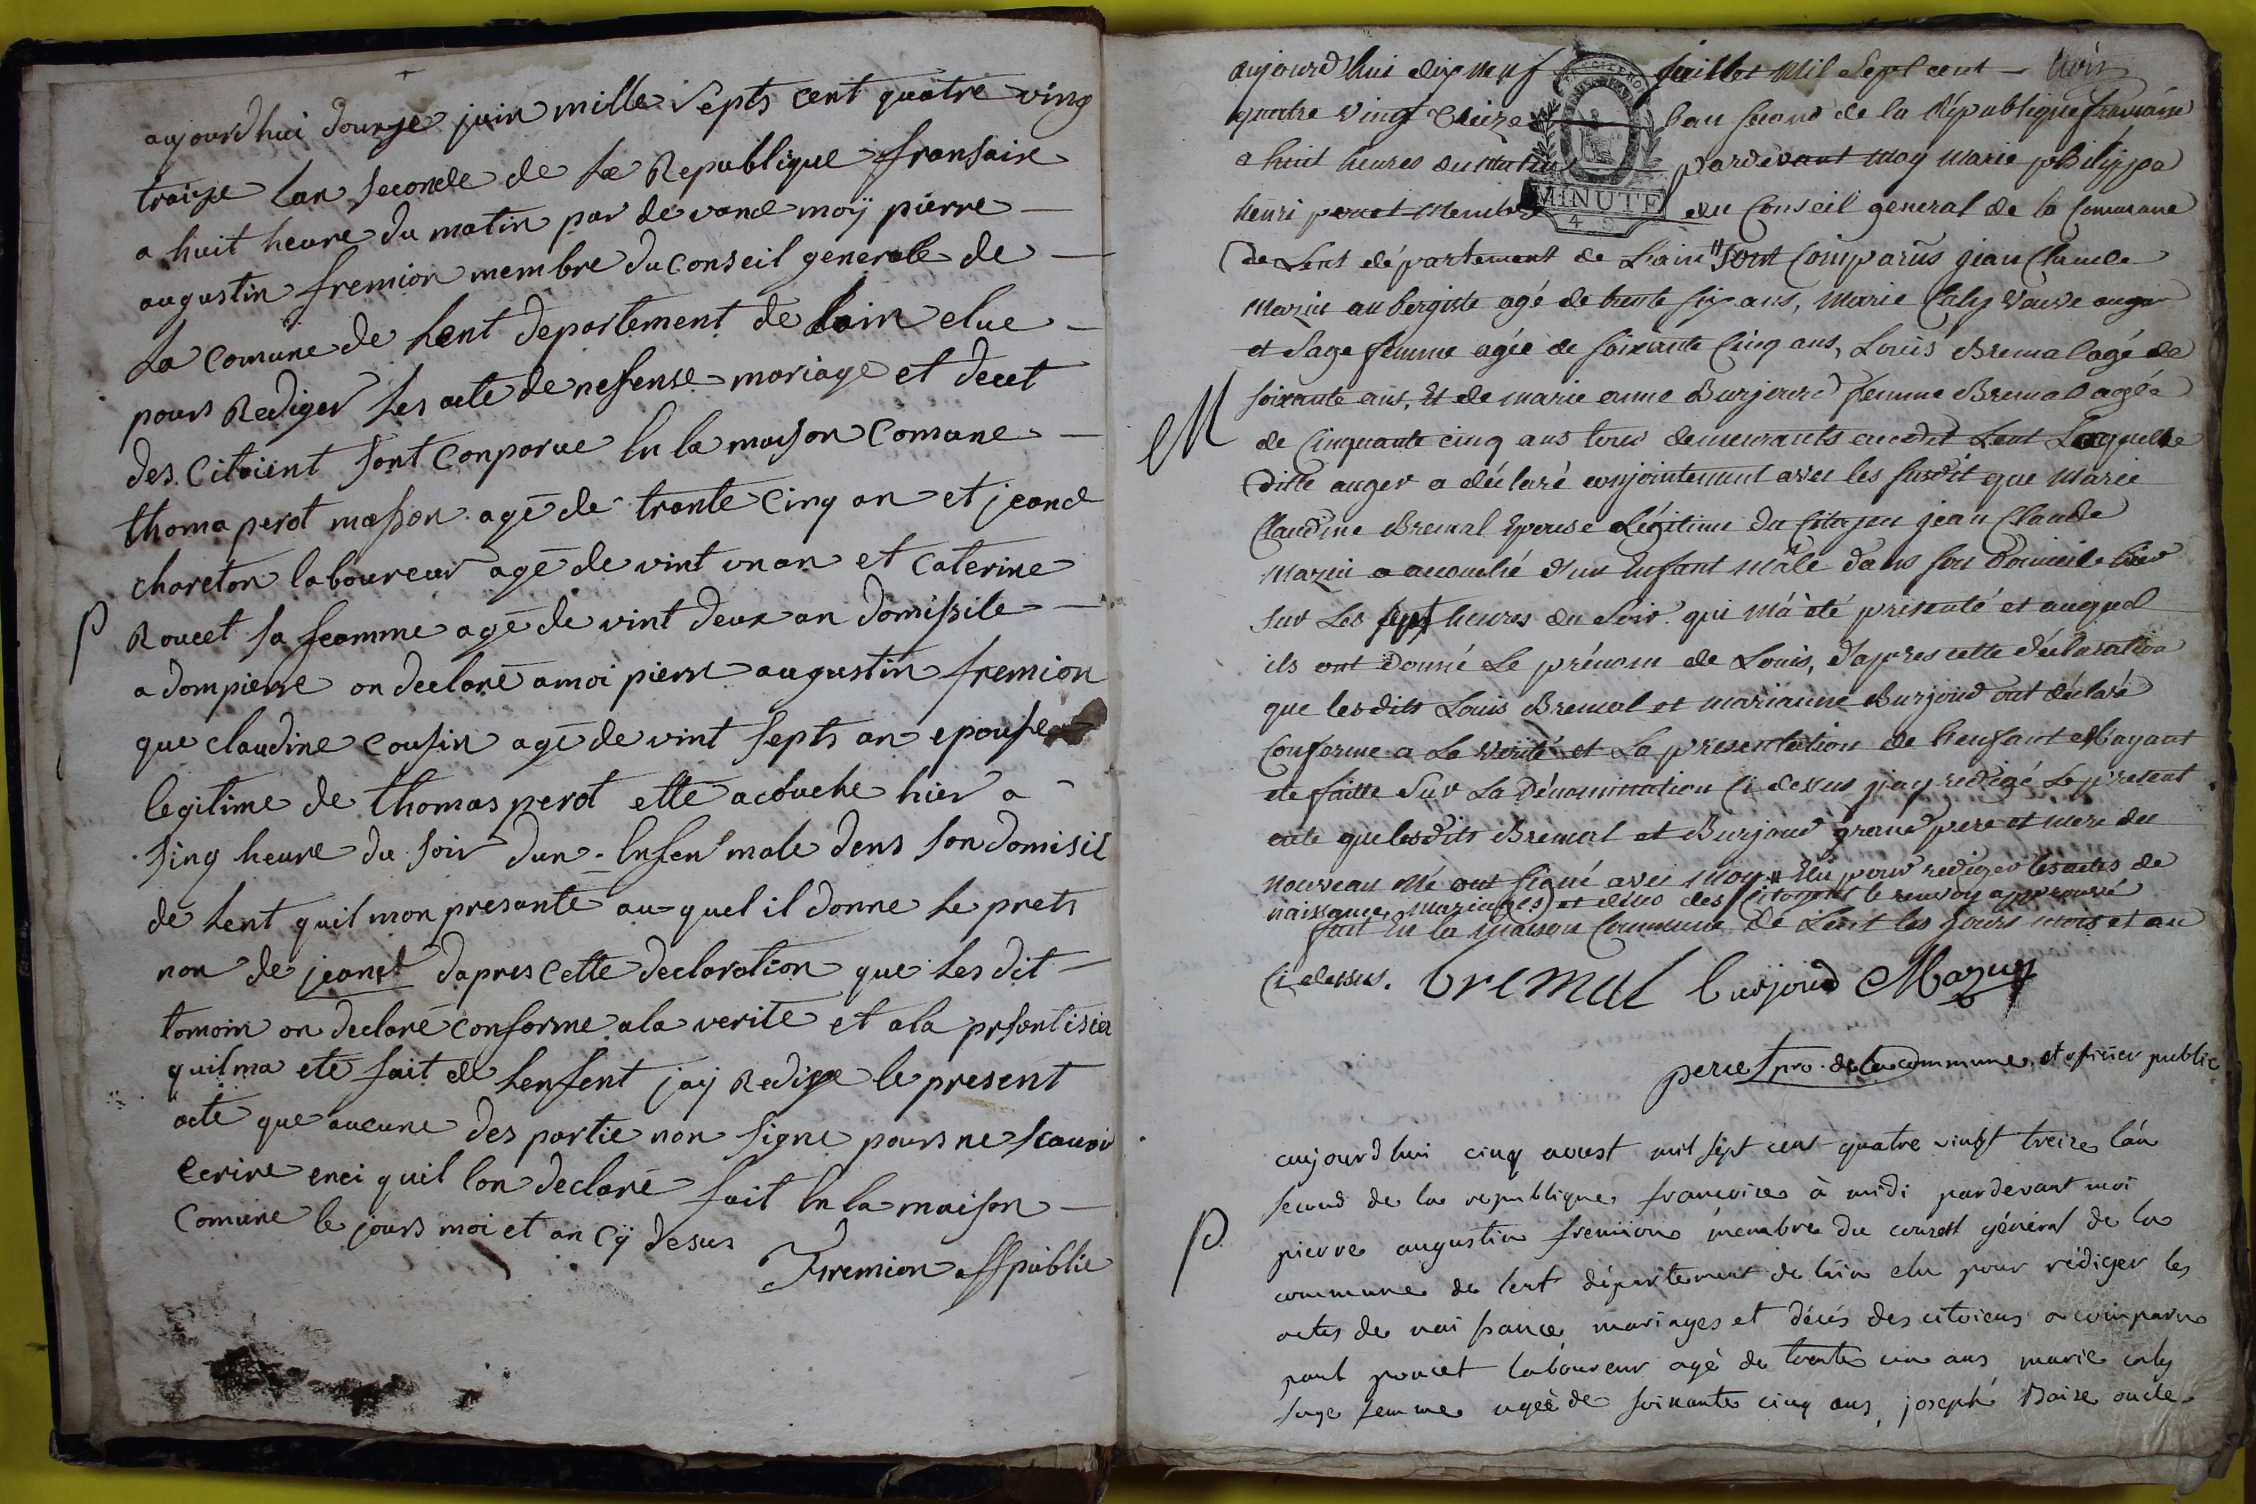 aujourdhui dourze juin mille Septs cent quatre ving
traize lan seconde de La Republique fransaise
a huit heure du matin par de vand moÿ pierre
augustin fremion membre du conseil generale de
La comune de Lent departement de lain elue
pours Rediger Les acte de nesense mariage et decet
des Citoient sont conparue En la maison comune
thoma perot masson agé de trante cinq an et jeand
chareton laboureur agé de vint un an et caterine
P
Roucet sa feamme agé de vint deux an domissile
a dompierre on declaré a moi pierre augustin fremion
que claudine cousin agé de vint septs an epouse
legitime de thomas perot ette acouche hier a
sinq heure du soir dun Enfen male dens son domisil
de Lent quil mon presanté au quel il donne Le prets
non de jeanet dapres cette declaration que Les dit
tomoin on declaré conforme a la verite et a la presentisien
quil ma eté fait de Lenfent jaÿ Redige le present
acte que aucune des partie non signe pours ne scavoir
ecrire enci quil lon declaré fait En la maison
comune le jours moi et an cÿ desus
Fremion off public
aujourd'hui dix neuf juillet Mil Sept cent
quatre vingt treize l'an second de la République française
a huit heures du matin pardevant moy marie philippe
henri perret Membre du Conseil general de la Commune
De Lent département de L'ain sont comparûs jean Claude
Mazuir aubergiste agé de trente six ans, Marie Caly veuve auger
et Sage femme agée de soixante Cinq ans, Louis Bremal agé de
M
soixante ans, Et de marie anne Burjoud femme Bremal agée
de Cinquante cinq ans tous demeurants audit Lent Laquelle
Ditte auger a déclaré conjointement avec les susdit que Marie
Claudine Bremal Epouse Légitime du Citoyen jean Claude
Mazuir a accouché d'un Enfant Mâle dans son Domicile hier
sur Les sept heures du Soir qui m'a été presenté et auquel
ils ont Donné Le prénom de Louis, d'apres cette déclaration
que lesdits Louis Bremal et marianne Burjoud ont déclaré
Conforme a La verité et La presentation de L'enfant M'ayant
ete faitte Sur La Dénomination Ci dessus j'ay redigé Le present
acte que lesdits Bremal et Burjoud grand pere et mere du
nouveau né ont signé avec moy Elu pour rediger les actes de
naissance, mariages et décès des Citoyens le renvoy approuvé
fait En la maison Commune de Lent les jours mois et an
Ci dessus. bremal burjoud Mazuy
perret pro. de la commune et officier public
aujourdhui cinq aoust mil sept cent quatre vingt treize l'an
second de la republique françoise à midi pardevant moi
P.
pierre augustin fremion membre du conseil général de la
commune de lent département de l'ain elu pour rédiger les
actes de naissance mariages et décés des citoiens a comparu
paul poncet laboureur agé de trente cin ans marie caly
sage femme agée de soixante cinq ans, joseph Baise oncle